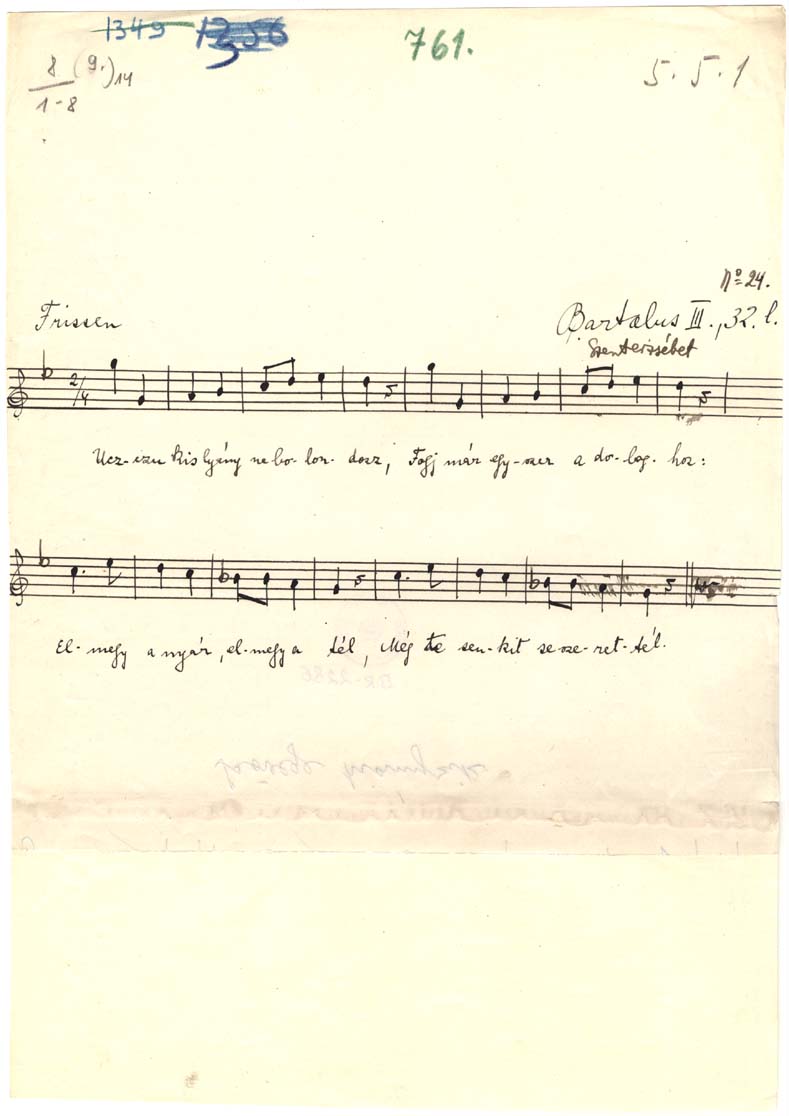 1349 1356 761.
8 (9.) 14 5. 5. 1
1-8
No 24.
Frissen Bartalus III., 32. l.
Szenterzsébet
2/4
Ucz-czu kis lyány ne bo-lon-dozz, Fogj már egy-szer a do-log-hoz:
El-megy a nyár, el-megy a tél, Még te sen-kit se sze-ret-tél.
BR-2286